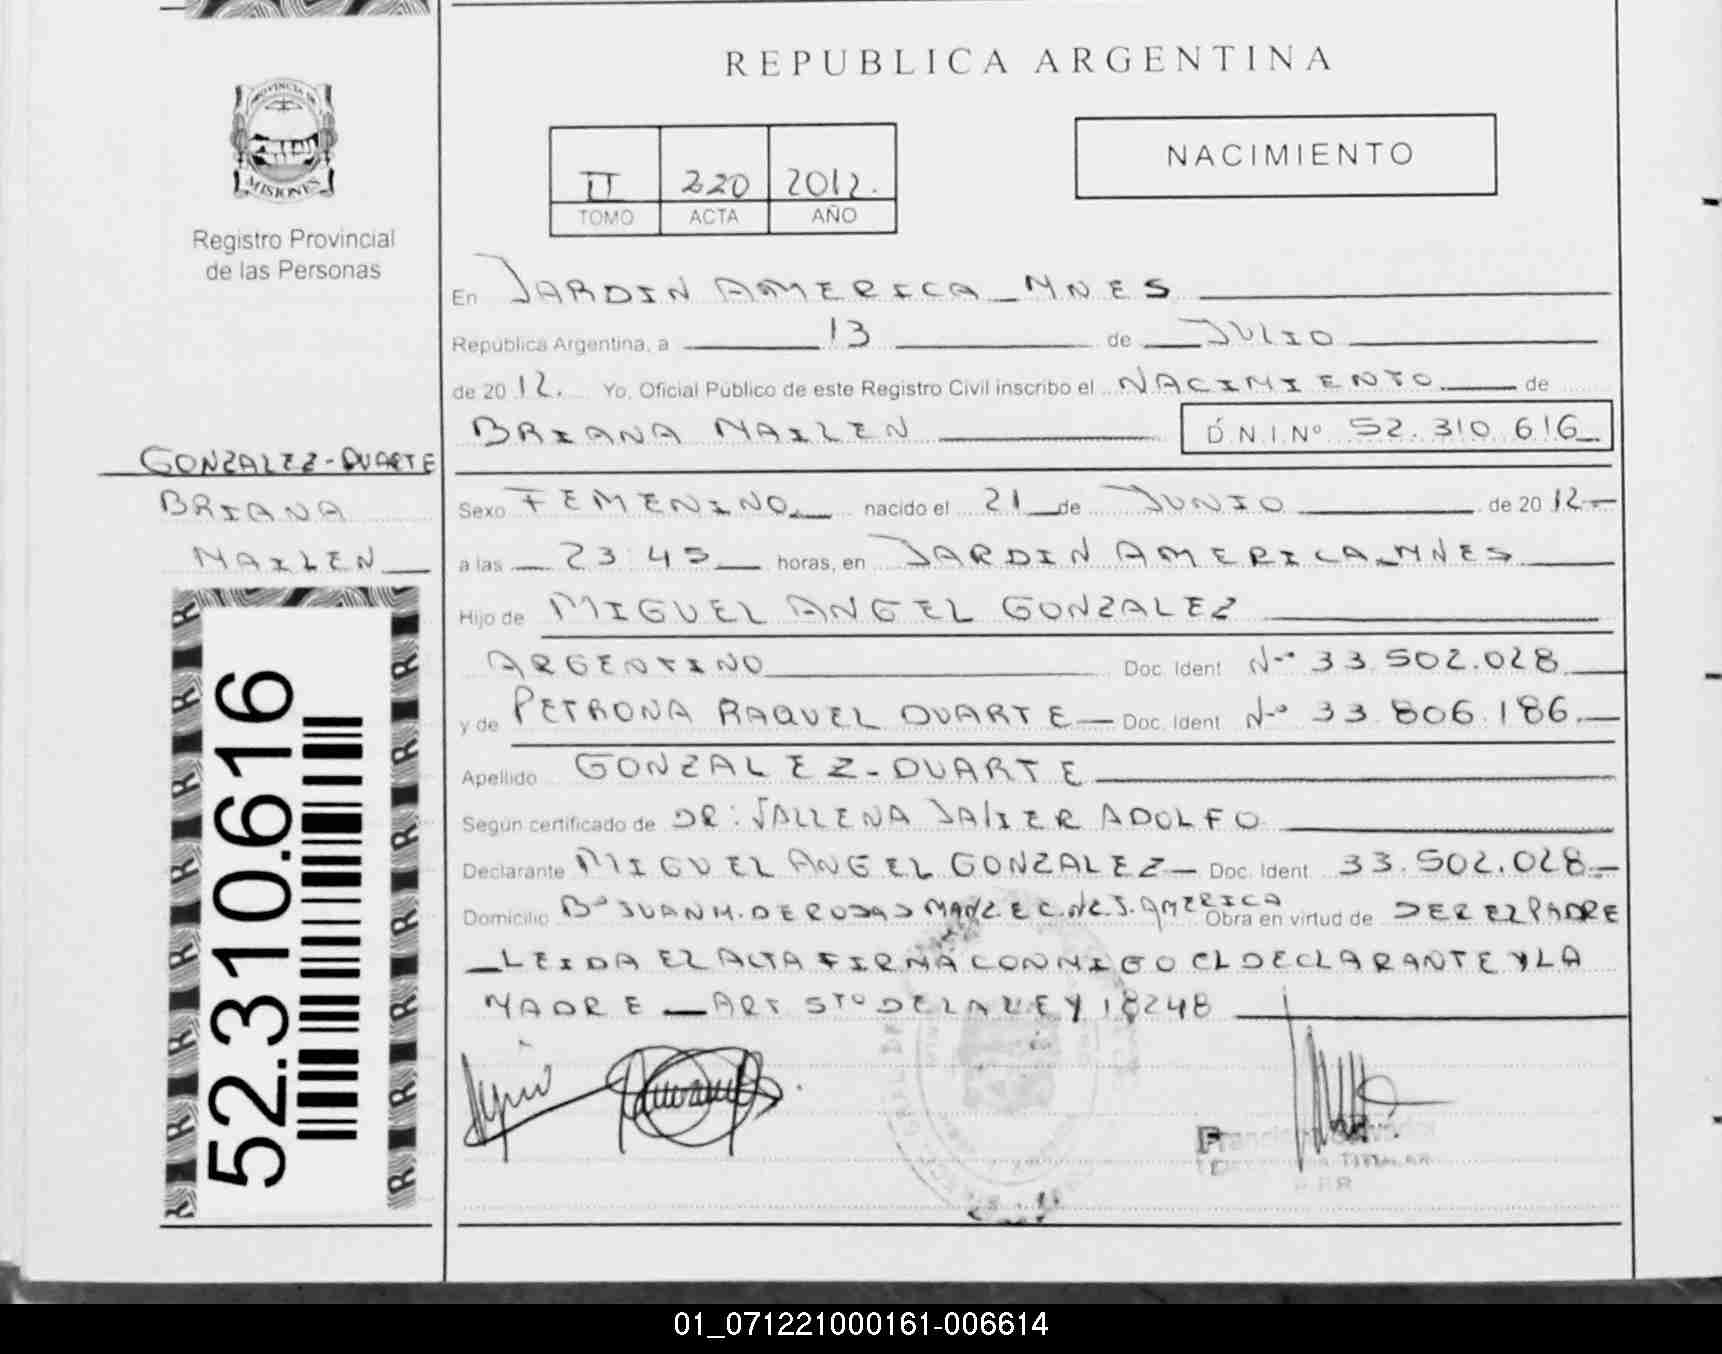 REPUBLICA ARGENTINA
PROVINCIA DE
MISIONES
Registro Provincial
de las Personas
II 220 2012.
TOMO ACTA AÑO
NACIMIENTO
En JARDIN AMERICA_MNES
República Argentina, a 13 de JULIO
de 20 12. Yo, Oficial Público de este Registro Civil inscribo el NACIMIENTO de
BRIANA MAILEN D N I Nº 52.310.616
GONZALEZ-DUARTE
BRIANA
MAILEN
Sexo FEMENINO nacido el 21 de JUNIO de 20 12-
a las 23:45 horas, en JARDIN AMERICA_MNES
Hijo de MIGUEL ANGEL GONZALEZ
ARGENTINO Doc. Ident Nº 33.502.028
y de PETRONA RAQUEL DUARTE Doc. Ident Nº 33.806.186.
Apellido GONZALEZ-DUARTE
Según certificado de DR: VALLENA JAVIER ADOLFO
Declarante MIGUEL ANGEL GONZALEZ Doc. Ident 33.502.028.-
Domicilio Bº JUAN M. DE ROSAS J. AMERICA Obra en virtud de SER EL PADRE
LEIDA EL ACTA FIRMA CONMIGO EL DECLARANTE Y LA
MADRE _ ART 5TO DE LA LEY 18248
52.310.616
TITULAR
01_071221000161-006614